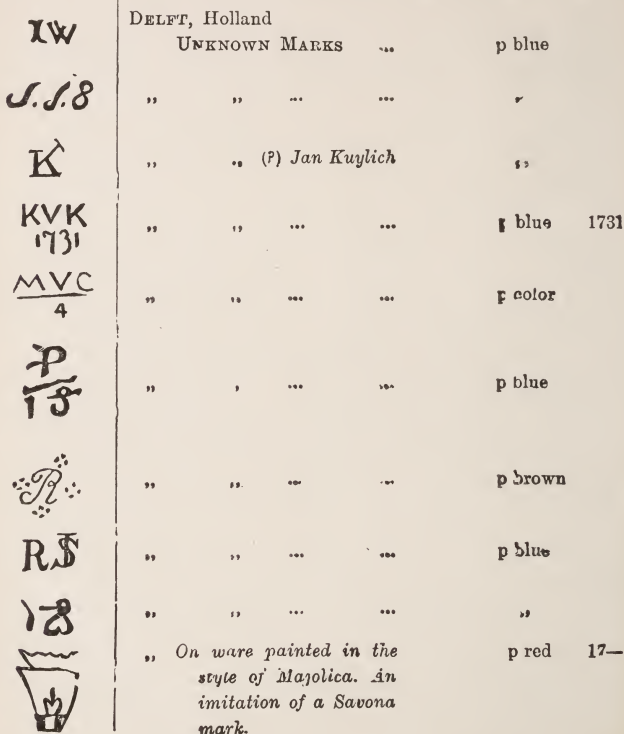 DELFT, Holland
IW UNKNOWN MARKS ... p blue
J.J.8 „ „ ... ... „
K „ „ (?) Jan Kuylich „
KVK „ „ ... ... p blue 1731
1731
MVC „ „ ... ... p color
4
P „ „ ... ... p blue
18
R „ „ ... ... p brown
RS „ „ ... ... p blue
18 „ „ ... ... „
„ On ware painted in the p red 17—
style of Majolica. An
imitation of a Savona
mark.